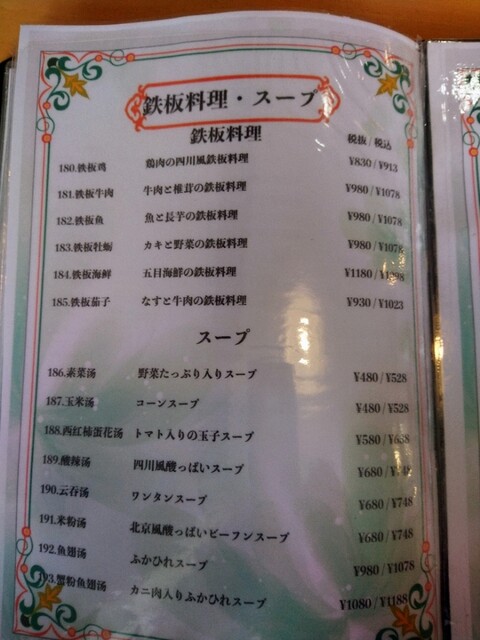 鉄板料理・スープ
鉄板料理
税抜 / 税込
180.鉄板鸡 鶏肉の四川風鉄板料理 ¥830 / ¥913
181.鉄板牛肉 牛肉と椎茸の鉄板料理 ¥980 / ¥1078
182.鉄板魚 魚と長芋の鉄板料理 ¥980 / ¥1078
183.鉄板牡蛎 カキと野菜の鉄板料理 ¥980 / ¥1078
184.鉄板海鮮 五目海鮮の鉄板料理 ¥1180 / ¥1298
185.鉄板茄子 なすと牛肉の鉄板料理 ¥930 / ¥1023
スープ
186.素菜汤 野菜たっぷり入りスープ ¥480 / ¥528
187.玉米汤 コーンスープ ¥480 / ¥528
188.西红柿蛋花汤 トマト入りの玉子スープ ¥580 / ¥638
189.酸辣汤 四川風酸っぱいスープ ¥680 / ¥748
190.云吞汤 ワンタンスープ ¥680 / ¥748
191.米粉汤 北京風酸っぱいビーフンスープ ¥680 / ¥748
192.魚翅汤 ふかひれスープ ¥980 / ¥1078
193.蟹粉魚翅汤 カニ肉入りふかひれスープ ¥1080 / ¥1188